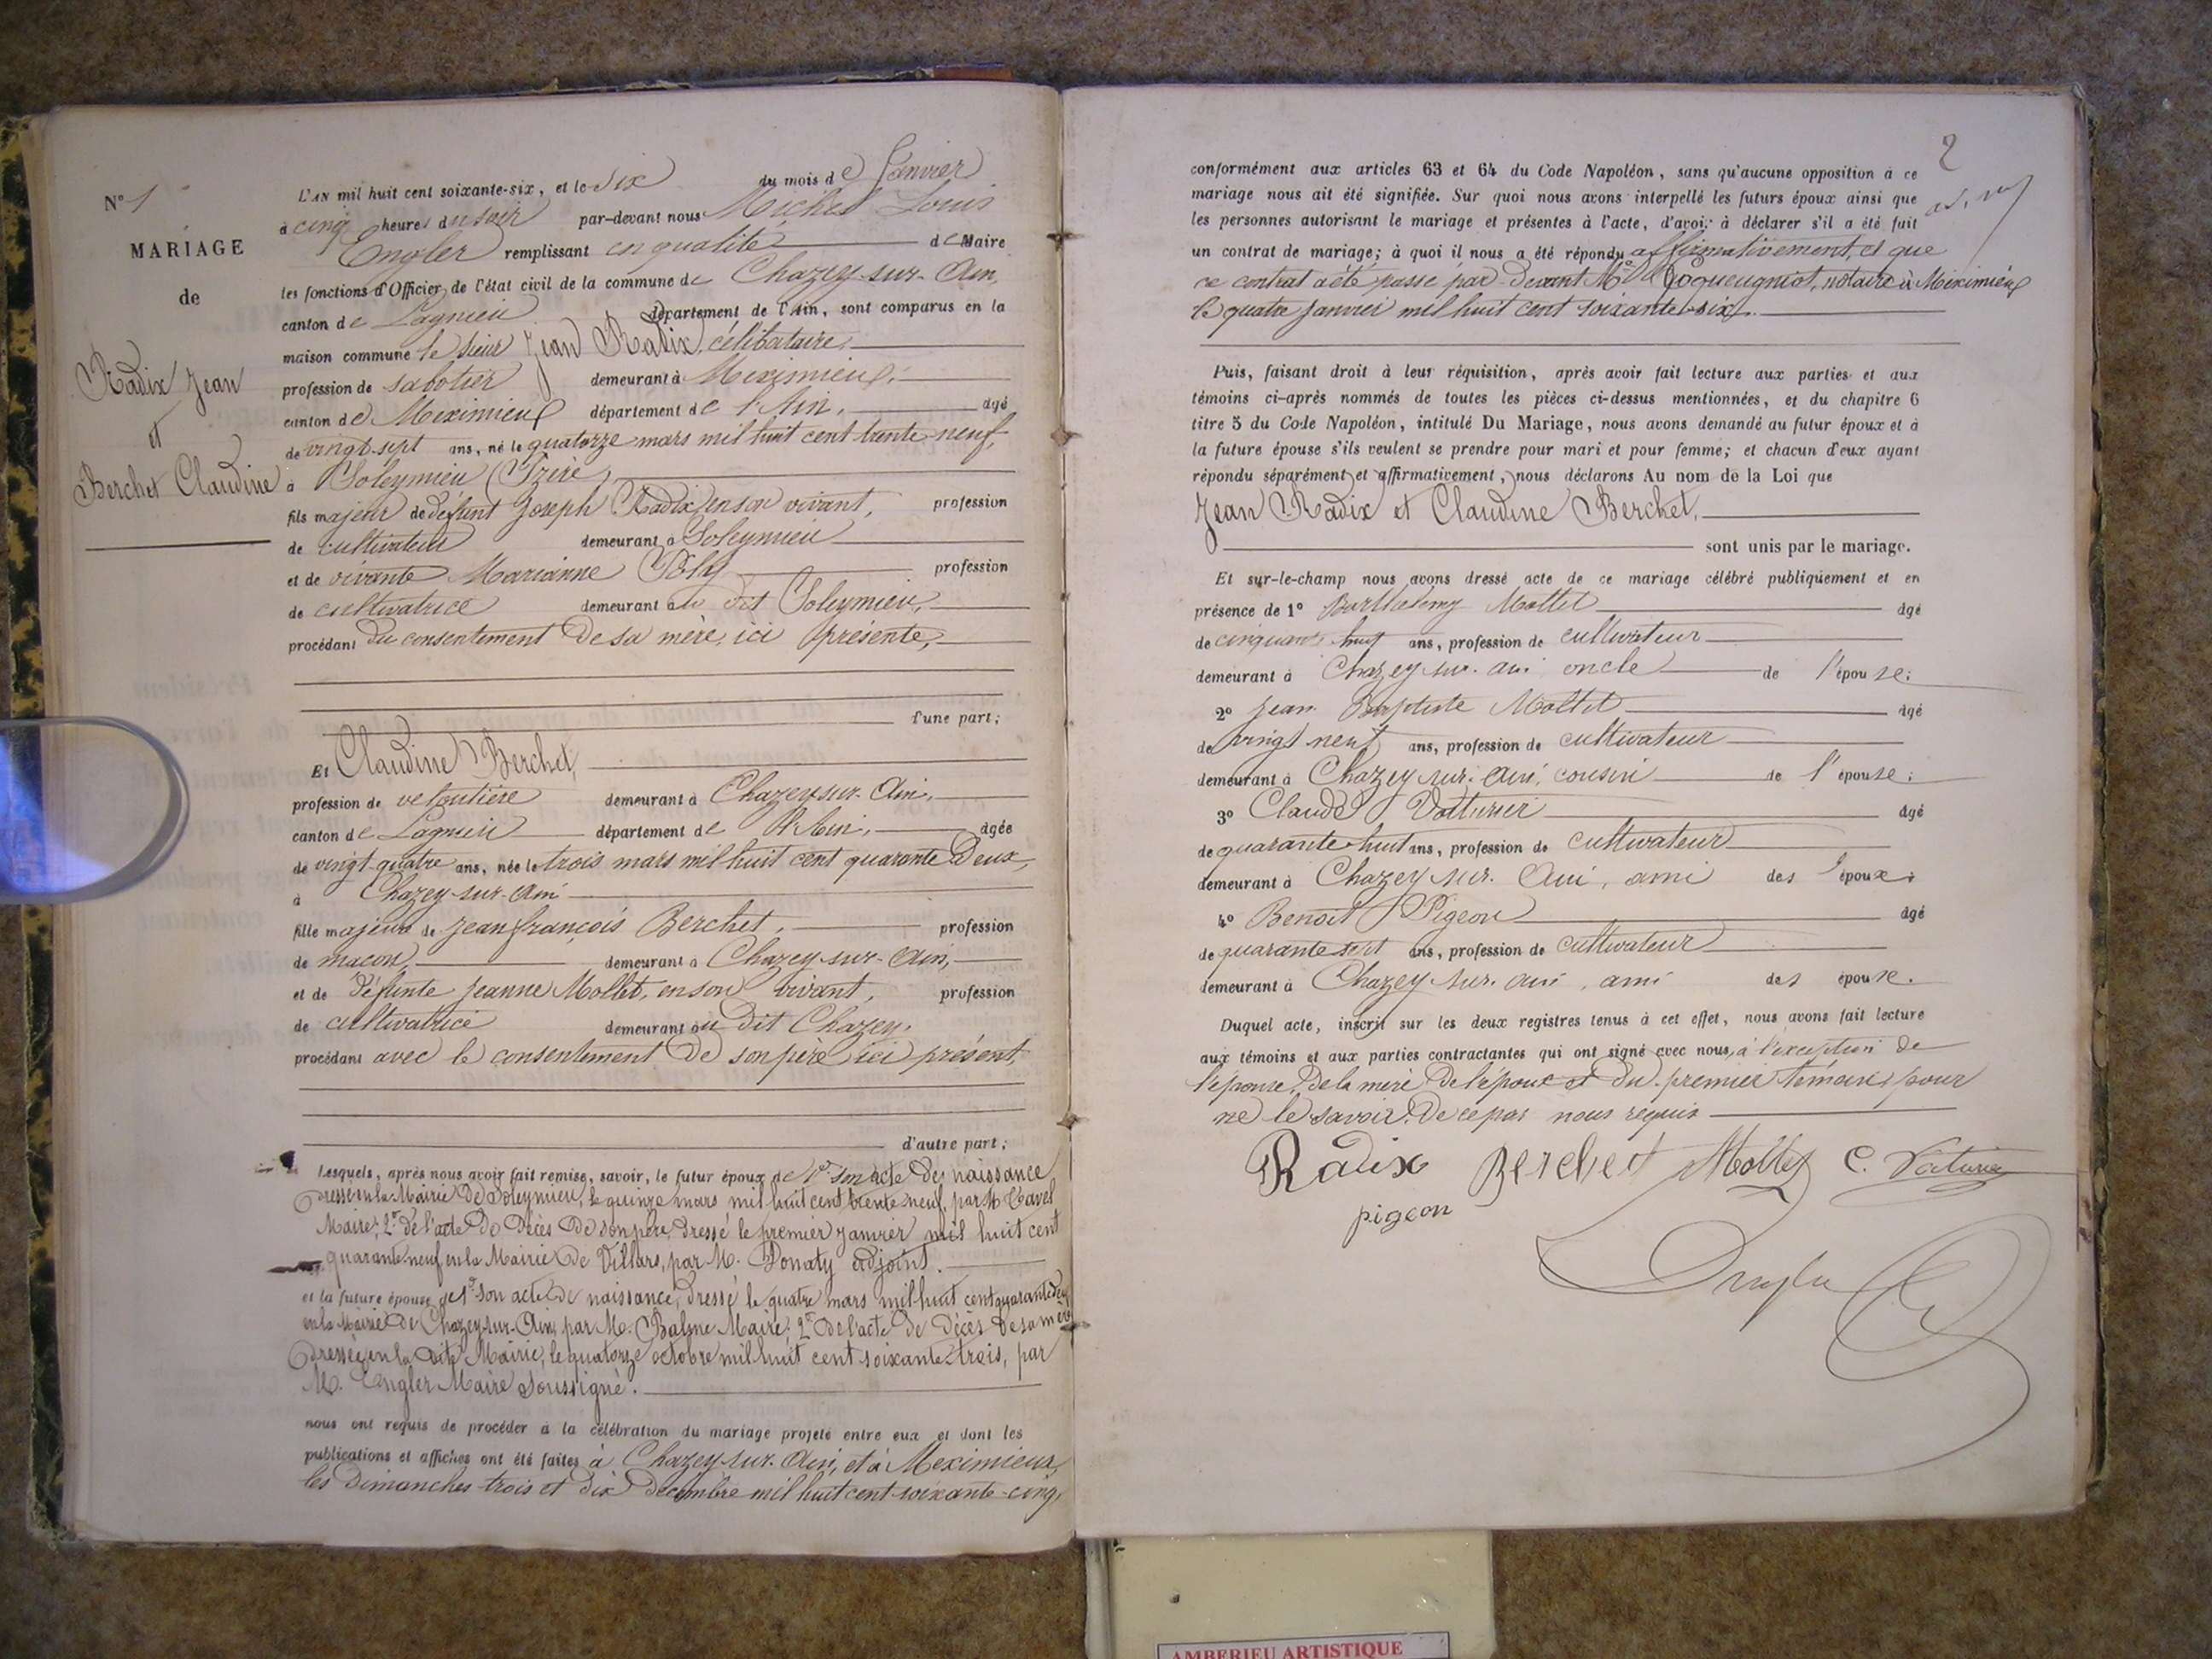 N° 1
MARIAGE
de
Radix Jean
et
Berchet Claudine
L'AN mil huit cent soixante-six, et le six du mois de Janvier
à cinq heures du soir par-devant nous Michel Louis
Engler remplissant en qualité de Maire
les fonctions d'Officier de l'état civil de la commune de Chazey-sur-Ain,
canton de Lagnieu département de l'Ain, sont comparus en la
maison commune le sieur Jean Radix, célibataire,
profession de sabotier demeurant à Meximieux,
canton de Meximieux département de l'Ain, âgé
de vingt-sept ans, né le quatorze mars mil huit cent trente neuf,
à Soleymieu (Izère)
fils majeur de défunt Joseph Radix, en son vivant, profession
de cultivateur demeurant à Soleymieu
et de vivante Marianne Poly profession
de cultivatrice demeurant au dit Soleymieu,
procédant du consentement de sa mère, ici présente,
d'une part;
Et Claudine Berchet,
profession de veloutière demeurant à Chazey-sur-Ain,
canton de Lagnieu département de l'Ain, âgée
de vingt-quatre ans, née le trois mars mil huit cent quarante deux,
à Chazey-sur-Ain
fille majeure de Jean françois Berchet, profession
de maçon, demeurant à Chazey-sur-Ain,
et de défunte Jeanne Mollet, en son vivant, profession
de cultivatrice demeurant au dit Chazey,
procédant avec le consentement de son père ici présent,
d'autre part;
Lesquels, après nous avoir fait remise, savoir, le futur époux de 1° son acte de naissance
dressé en la Mairie de Soleymieu, le quinze mars mil huit cent trente neuf, par M. Tavel
Maire; 2° de l'acte de décès de son père, dressé le premier janvier mil huit cent
quarante-neuf en la Mairie de Villars, par M. Donaty adjoint.
et la future épouse de 1° son acte de naissance, dressé le quatre mars mil huit cent quarante deux
en la Mairie de Chazey-sur-Ain, par M. Balme Maire; 2° de l'acte de décès de sa mère
dressé en la dite Mairie, le quatorze octobre mil huit cent soixante-trois, par
M. Engler Maire soussigné.
nous ont requis de procéder à la célébration du mariage projeté entre eux et dont les
publications et affiches ont été faites à Chazey-sur-Ain, et à Meximieux,
les dimanches trois et dix décembre mil huit cent soixante-cinq,
2
conformément aux articles 63 et 64 du Code Napoléon, sans qu'aucune opposition à ce
mariage nous ait été signifiée. Sur quoi nous avons interpellé les futurs époux ainsi que
les personnes autorisant le mariage et présentes à l'acte, d'avoir à déclarer s'il a été fait
un contrat de mariage; à quoi il nous a été répondu affirmativement, et que
ce contrat a été passé par-devant Me Coqueugniot, notaire à Meximieux
le quatre janvier mil huit cent soixante-six.
Puis, faisant droit à leur réquisition, après avoir fait lecture aux parties et aux
témoins ci-après nommés de toutes les pièces ci-dessus mentionnées, et du chapitre 6
titre 5 du Code Napoléon, intitulé Du Mariage, nous avons demandé au futur époux et à
la future épouse s'ils veulent se prendre pour mari et pour femme; et chacun d'eux ayant
répondu séparément et affirmativement, nous déclarons Au nom de la Loi que
Jean Radix et Claudine Berchet,
sont unis par le mariage.
Et sur-le-champ nous avons dressé acte de ce mariage célébré publiquement et en
présence de 1° Barthelemy Mollet âgé
de cinquante huit ans, profession de cultivateur
demeurant à Chazey-sur-ain oncle de l'épouse;
2° Jean Baptiste Mollet âgé
de vingt neuf ans, profession de cultivateur
demeurant à Chazey-sur-Ain, cousin de l'épouse;
3° Claude Voiturier âgé
de quarante-huit ans, profession de cultivateur
demeurant à Chazey-sur-Ain, ami des époux;
4° Benoît Pigeon âgé
de quarante sept ans, profession de cultivateur
demeurant à Chazey-sur-ain, ami des épouse.
Duquel acte, inscrit sur les deux registres tenus à cet effet, nous avons fait lecture
aux témoins et aux parties contractantes qui ont signé avec nous, à l'exception de
l'épouse, de la mère de l'époux et du premier témoin, pour
ne le savoir de ce par nous requis
Radix Berchet Mollet C. Voiturier
pigeon
Engler
AMBERIEU ARTISTIQUE